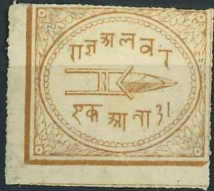 राज अलवर
एक आना